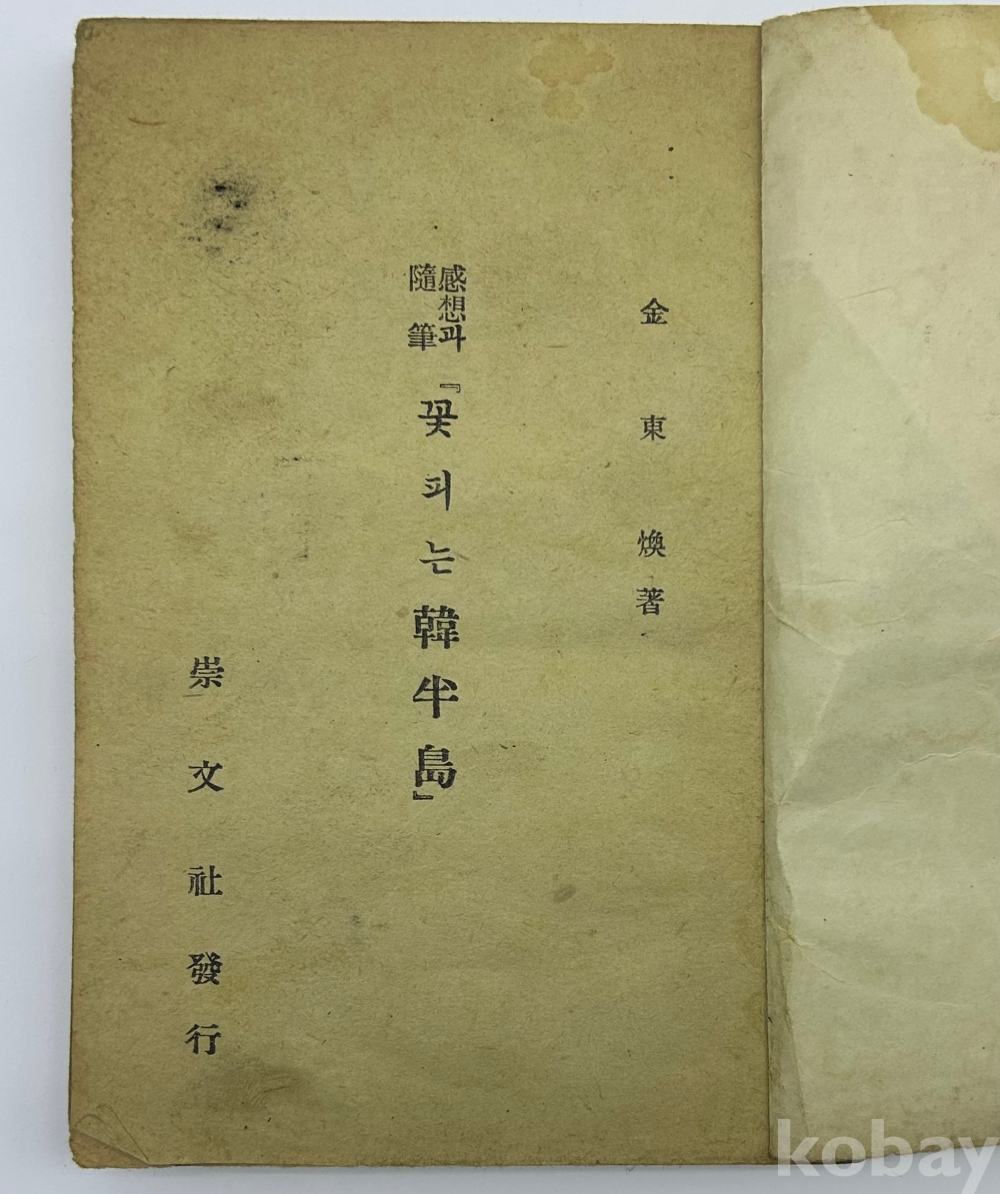 金東煥著
感想과
隨筆
『꽃피는韓半島』
崇文社發行
kobay